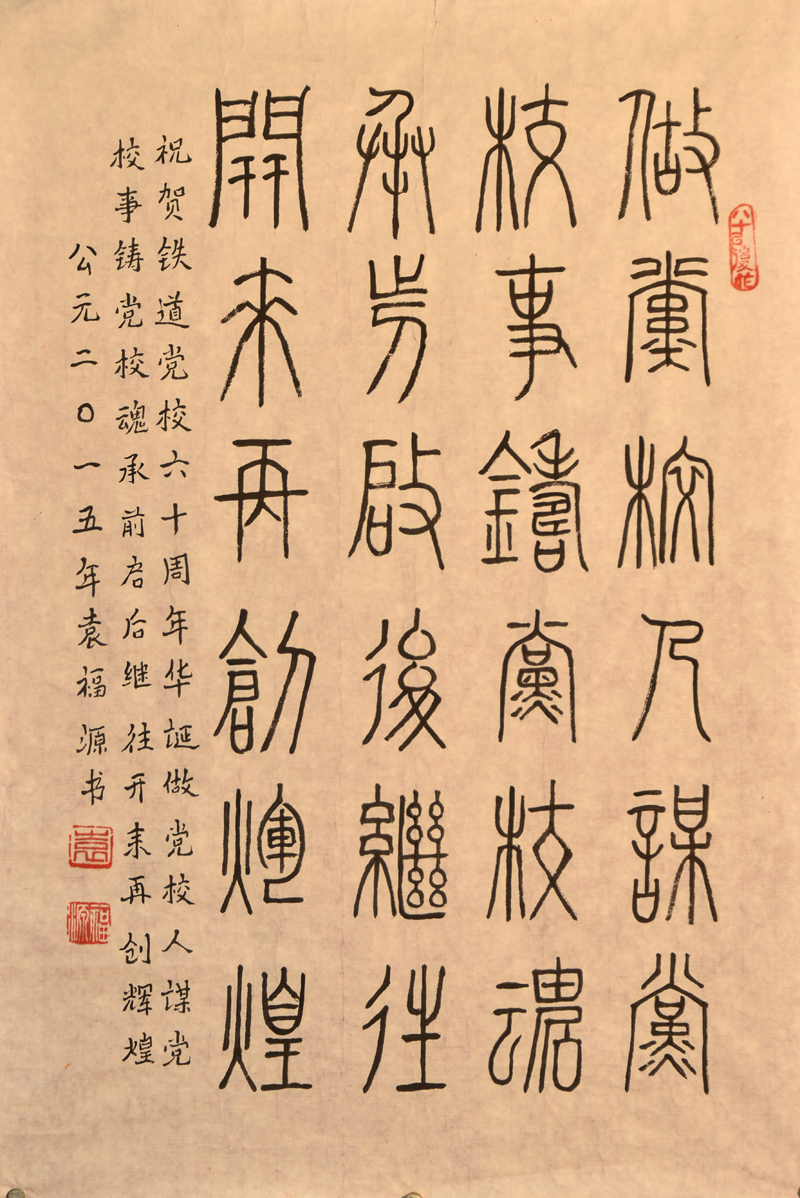 八十以後作
做黨校人謀黨
校事鑄黨校魂
承前啟後繼往
開來再創煇煌
祝贺铁道党校六十周年华诞做党校人谋党
校事铸党校魂承前启后继往开来再创辉煌
公元二〇一五年袁福源书
袁
福源